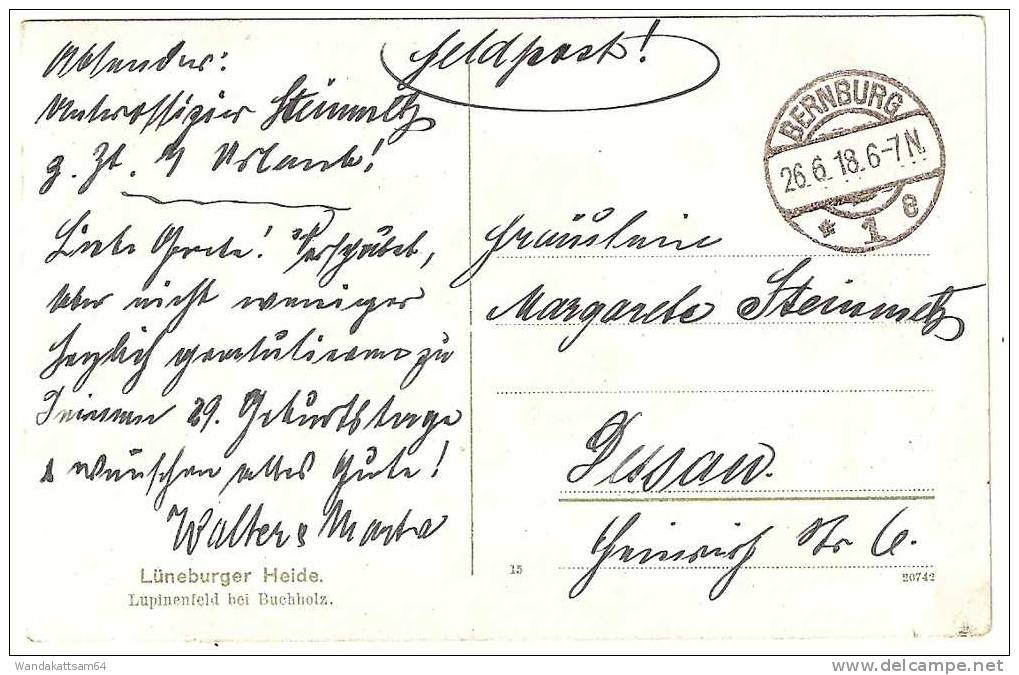 Feldpost!
Absender:
Unteroffizier Steinmetz
z. Zt. a/ Urlaub!
Liebe Grete! Verspätet,
aber nicht weniger
herzlich gratulieren zu
Deinem 29. Geburtstage
& wünschen alles Gute!
Walter & Marta
Lüneburger Heide.
Lupinenfeld bei Buchholz.
BERNBURG
26.6.18.6-7N.
* 1 e
Fräulein
Margarete Steinmetz
Dessau.
Heinrich Str 6.
15
20742
Wandakattsam64
www.delcampe.net